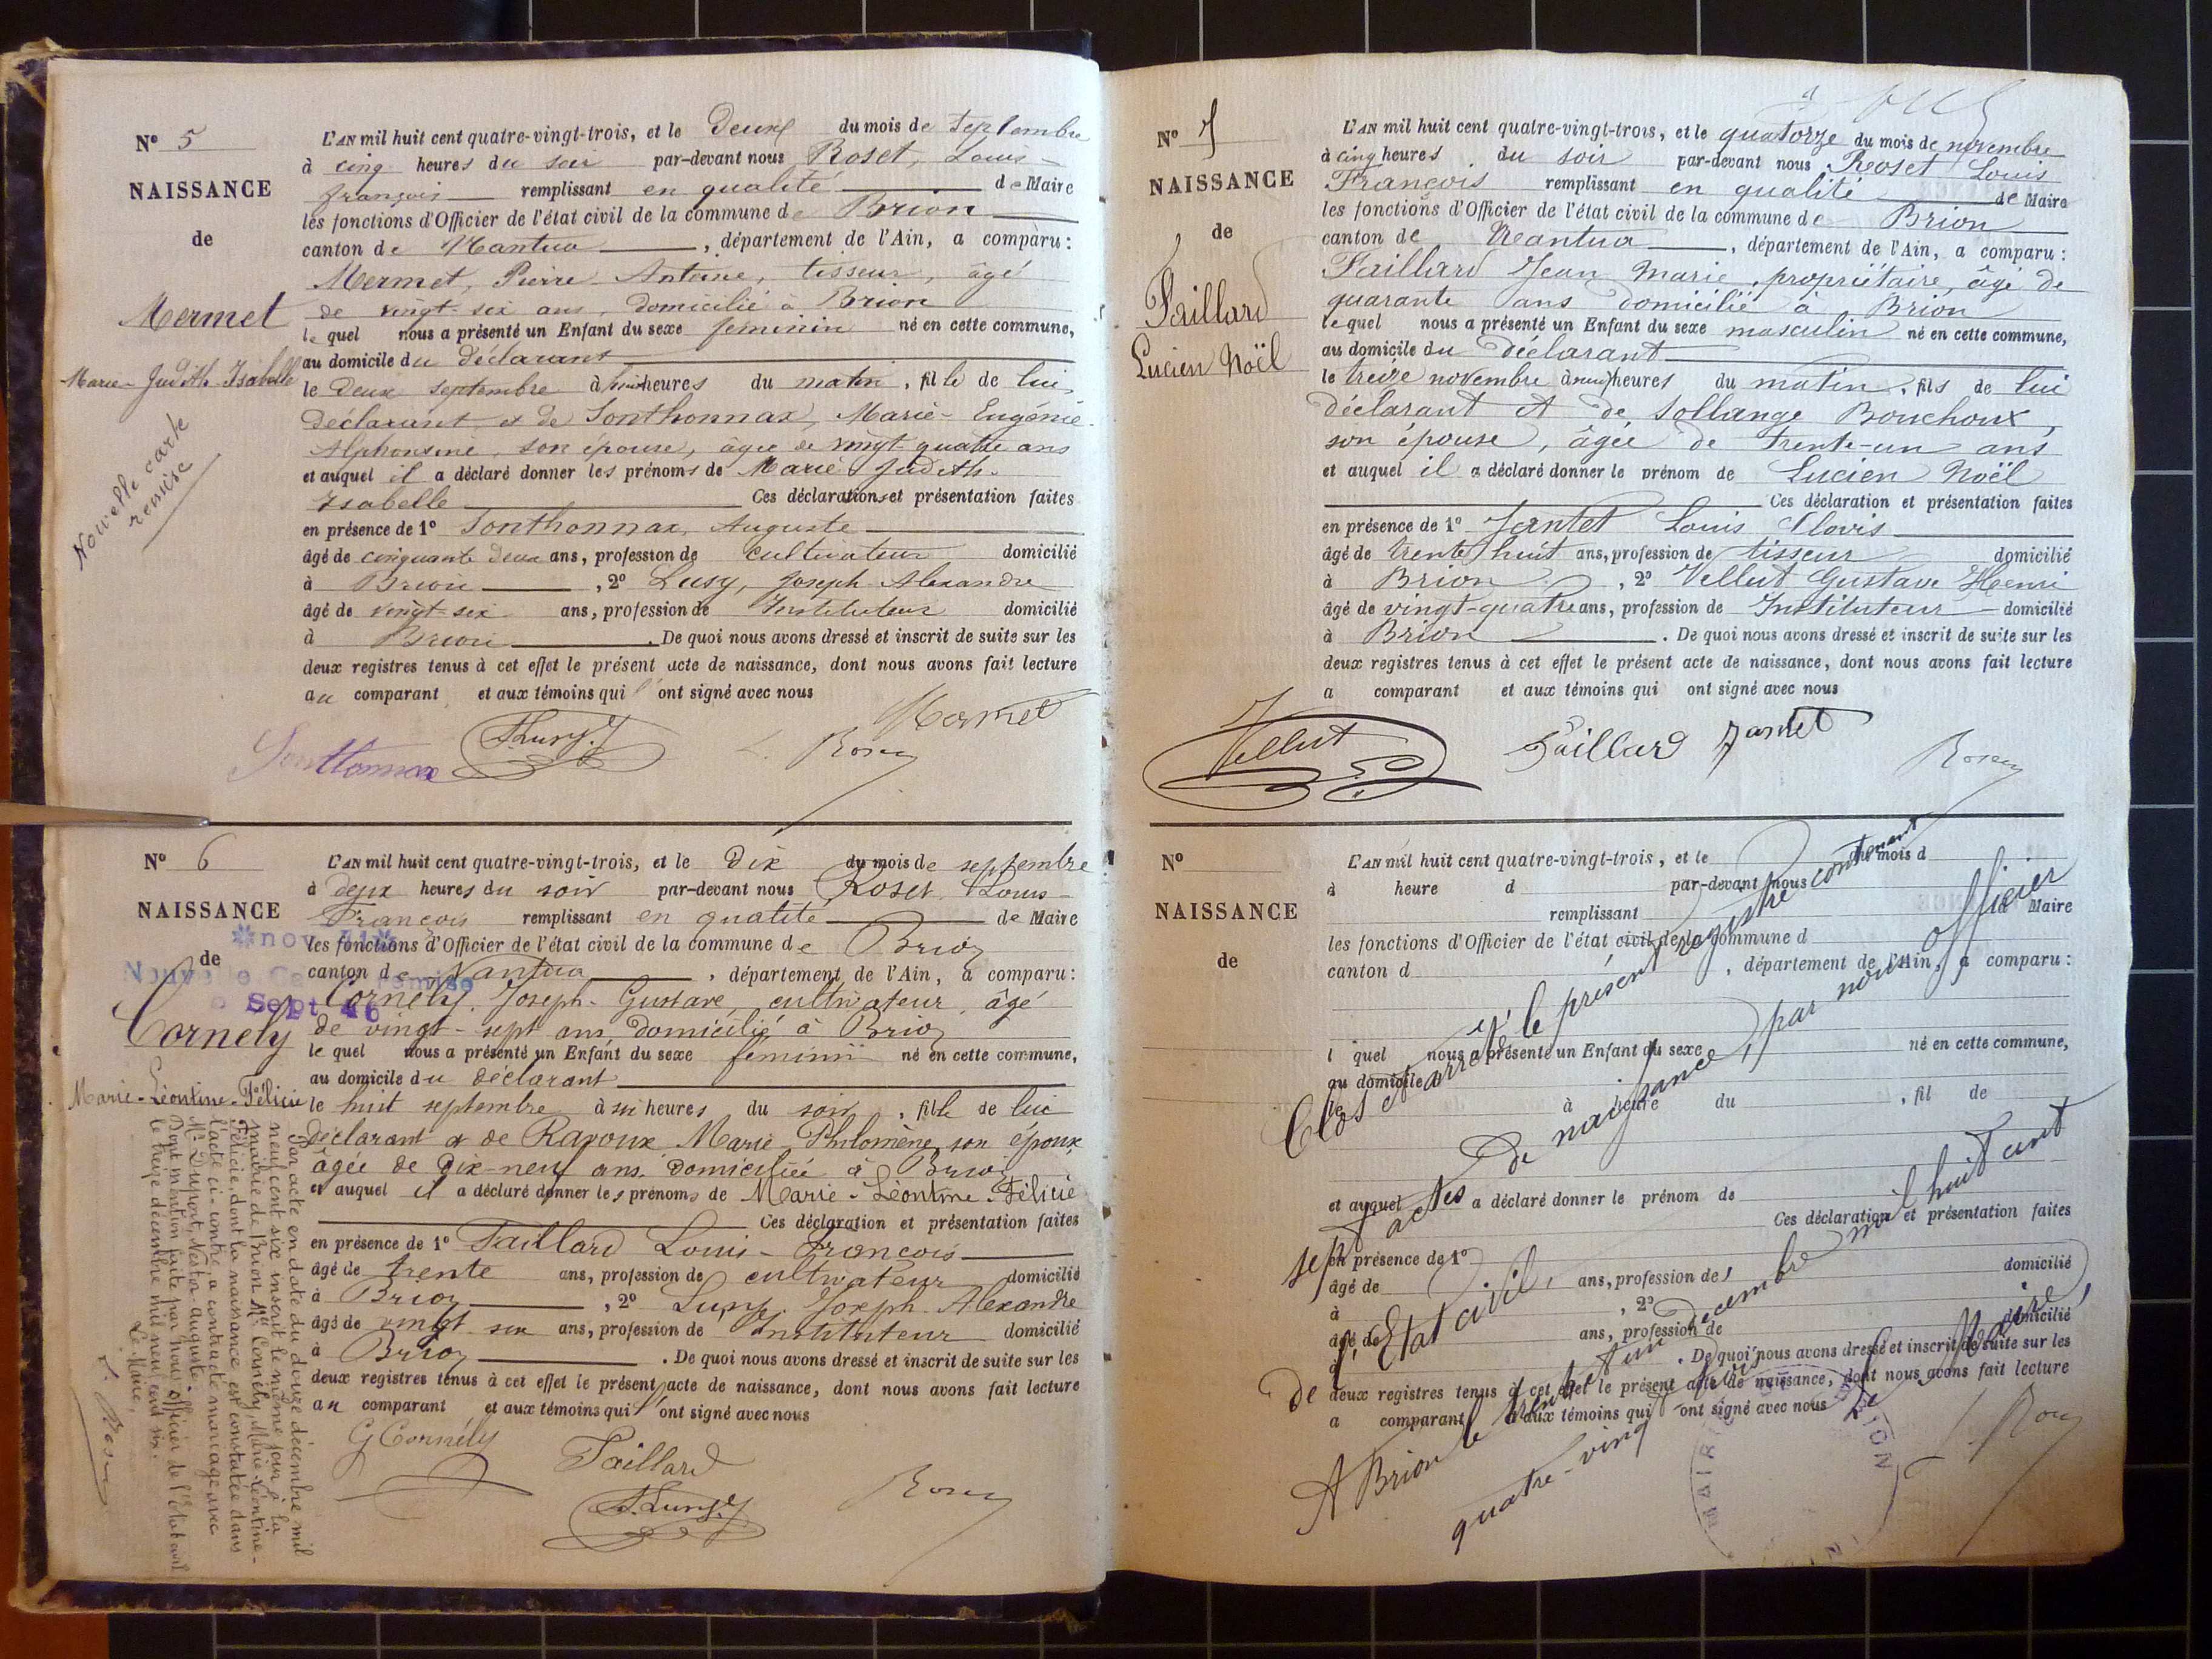 N° 5
NAISSANCE
de
Mermet
Marie-Judith-Isabelle
Nouvelle carte
remise
L'AN mil huit cent quatre-vingt-trois, et le Deux du mois de Septembre
à cinq heures du soir par-devant nous Roset, Louis-
françois remplissant en qualité de Maire
les fonctions d'Officier de l'état civil de la commune de Brion
canton de Nantua, département de l'Ain, a comparu:
Mermet, Pierre Antoine, tisseur, âgé
de vingt-six ans, domicilié à Brion
le quel nous a présenté un Enfant du sexe féminin né en cette commune,
au domicile du déclarant
le Deux septembre à heures du matin, fille de lui
Déclarant et de Sonthonnax, Marie-Eugénie-
Alphonsine, son épouse, âgée de vingt quatre ans
et auquel il a déclaré donner les prénoms de Marie Judith-
Isabelle Ces déclarations et présentation faites
en présence de 1° Sonthonnax, Auguste
âgé de cinquante deux ans, profession de cultivateur domicilié
à Brion, 2° Lusy, Joseph Alexandre
âgé de vingt-six ans, profession de Instituteur domicilié
à Brion. De quoi nous avons dressé et inscrit de suite sur les
deux registres tenus à cet effet le présent acte de naissance, dont nous avons fait lecture
au comparant et aux témoins qui l'ont signé avec nous
Mermet
Sonthonnax
N° 6
NAISSANCE
de
nov
Sept 46
Cornely
Marie-Léontine-Félicie
L'AN mil huit cent quatre-vingt-trois, et le Dix du mois de septembre
à deux heures du soir par-devant nous Roset Louis-
François remplissant en qualité de Maire
les fonctions d'Officier de l'état civil de la commune de Brion
canton de Nantua, département de l'Ain, a comparu:
Cornely, Joseph-Gustave, cultivateur, âgé
de vingt-sept ans, domicilié à Brion
le quel nous a présenté un Enfant du sexe féminin né en cette commune,
au domicile du déclarant
le huit septembre à six heures du soir, fille de lui
déclarant et de Ravoux Marie Philomène, son épouse,
âgée de Dix-neuf ans, domiciliée à Brion
et auquel il a déclaré donner les prénoms de Marie-Léontine-Félicie
Ces déclaration et présentation faites
en présence de 1° Faillard Louis-François
âgé de trente ans, profession de cultivateur domicilié
à Brion, 2° Lusy, Joseph Alexandre
âgé de vingt six ans, profession de Instituteur domicilié
à Brion. De quoi nous avons dressé et inscrit de suite sur les
deux registres tenus à cet effet le présent acte de naissance, dont nous avons fait lecture
au comparant et aux témoins qui l'ont signé avec nous
G Cornély
Faillard
Par acte en date du douze décembre mil
neuf cent six inscrit le même jour à la
mairie de Brion Mlle Cornély, Marie-Léontine-
Félicie, dont la naissance est constatée dans
l'acte ci-contre, a contracté mariage avec
Mr Nestor Auguste.
Dont mention faite par nous officier de l'Etat civil
le treize décembre mil neuf cent six.
Le Maire,
N° 7
NAISSANCE
de
Faillard
Lucien Noël
L'AN mil huit cent quatre-vingt-trois, et le quatorze du mois de novembre
à cinq heures du soir par-devant nous Roset Louis
François remplissant en qualité de Maire
les fonctions d'Officier de l'état civil de la commune de Brion
canton de Nantua, département de l'Ain, a comparu:
Faillard Jean Marie, propriétaire, âgé de
quarante ans domicilié à Brion
lequel nous a présenté un Enfant du sexe masculin né en cette commune,
au domicile du déclarant
le treize novembre à heures du matin, fils de lui
déclarant et de Sollange Bouchoux,
son épouse, âgée de trente-un ans
et auquel il a déclaré donner le prénom de Lucien Noël
Ces déclaration et présentation faites
en présence de 1° Jantet Louis Clovis
âgé de trente huit ans, profession de tisseur domicilié
à Brion, 2° Vellut Gustave Henri
âgé de vingt-quatre ans, profession de Instituteur domicilié
à Brion. De quoi nous avons dressé et inscrit de suite sur les
deux registres tenus à cet effet le présent acte de naissance, dont nous avons fait lecture
a comparant et aux témoins qui ont signé avec nous
Vellut Faillard Jantet
N°
NAISSANCE
de
L'AN mil huit cent quatre-vingt-trois, et le du mois d
à heure d par-devant nous
remplissant de Maire
les fonctions d'Officier de l'état civil de la commune d
canton d, département de l'Ain, a comparu:
l quel nous a présenté un Enfant du sexe né en cette commune,
au domicile
le à heure du, fil de
et auquel a déclaré donner le prénom de
Ces déclaration et présentation faites
en présence de 1°
âgé de ans, profession de domicilié
à, 2°
âgé de ans, profession de domicilié
à. De quoi nous avons dressé et inscrit de suite sur les
deux registres tenus à cet effet le présent acte de naissance, dont nous avons fait lecture
a comparant et aux témoins qui ont signé avec nous
Clos et arrêté le présent registre contenant
sept actes de naissance, par nous officier
de l'Etat civil.
A Brion le trente un décembre mil huit cent
quatre-vingt
Le Maire,
MAIRIE BRION